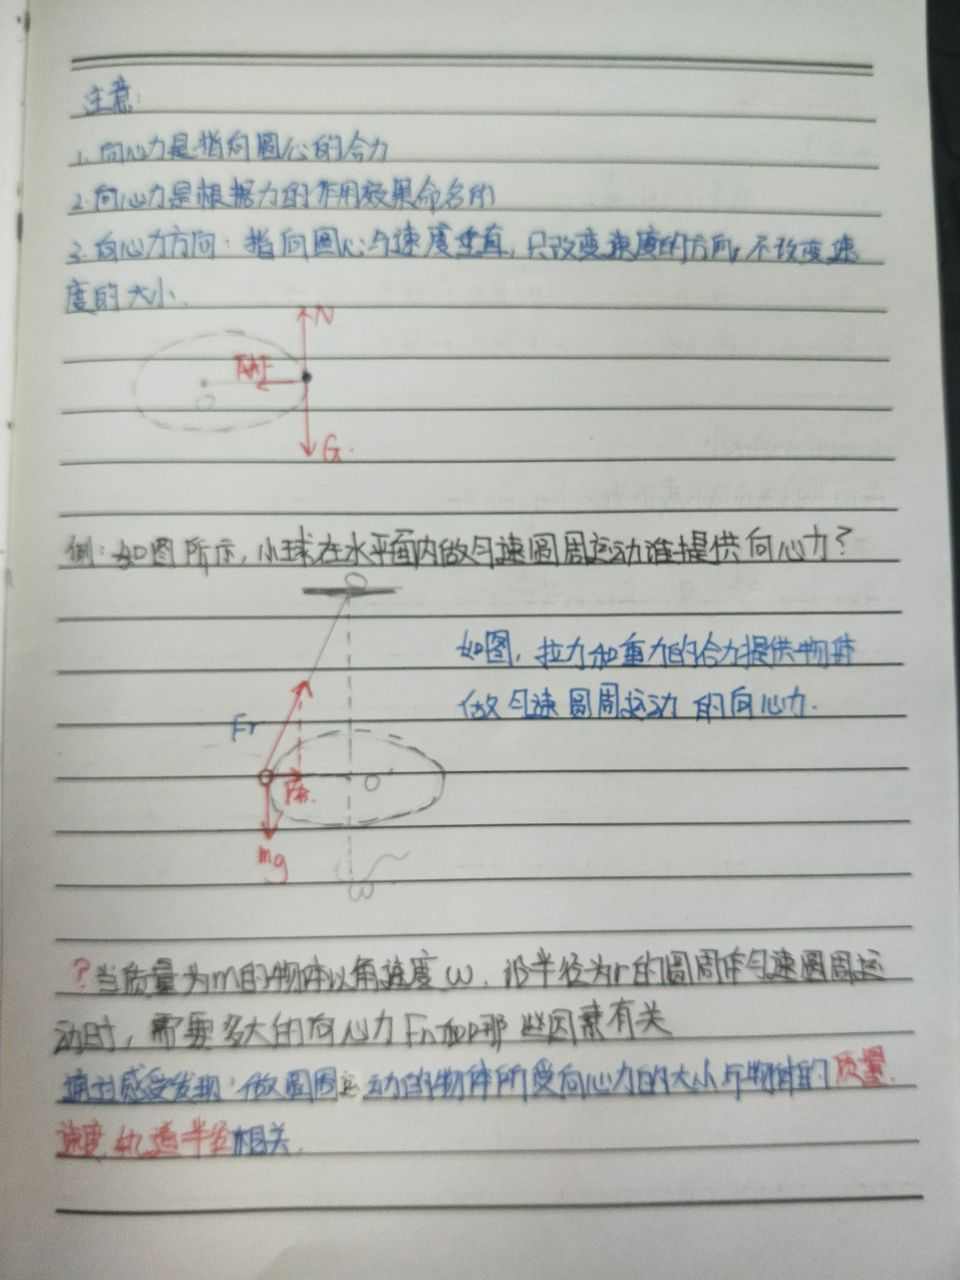 注意:
1.向心力是指向圆心的合力
2.向心力是根据力的作用效果命名的
3.向心力方向：指向圆心与速度垂直,只改变速度的方向,不改变速
度的大小.
N
O
G.
例：如图所示,小球在水平面内做匀速圆周运动谁提供向心力?
如图,拉力和重力的合力提供物体
做匀速圆周运动的向心力.
O
mg
ω
?当质量为m的物体以角速度ω,沿半径为r的圆周作匀速圆周运
动时,需要多大的向心力Fn 哪些因素有关
感受发现:做圆周运动的物体所受向心力的大小与物体的质量.
速度.轨道半径相关.